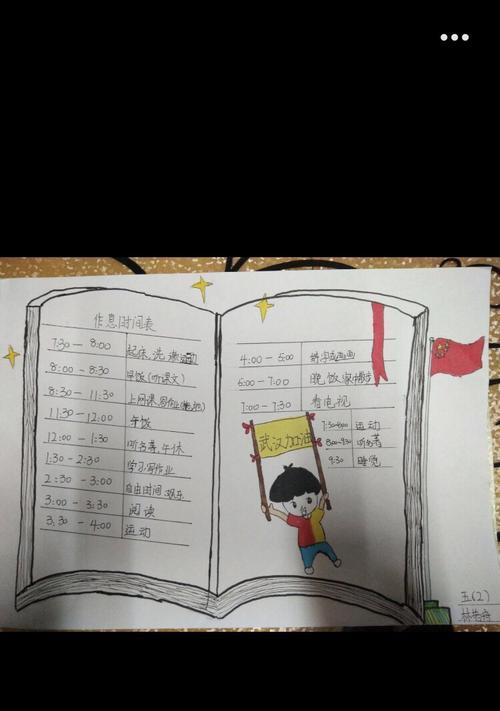 作息时间表
7:30 - 8:00 起床、洗漱运动
8:00 - 8:30 早饭(听课文)
8:30 - 11:30 上网课,写作业
11:30 - 12:00 午饭
12:00 - 1:30 听名著、午休
1:30 - 2:30 学习写作业
2:30 - 3:00 自由时间、娱乐
3:00 - 3:30 阅读
3:30 - 4:00 运动
4:00 - 5:00 练字或画画
6:00 - 7:00 晚饭、散步
7:00 - 7:30 看电视
7:30-8:00 运动
8:00-9:30 听名著
9:30 睡觉
武汉加油
五(2)